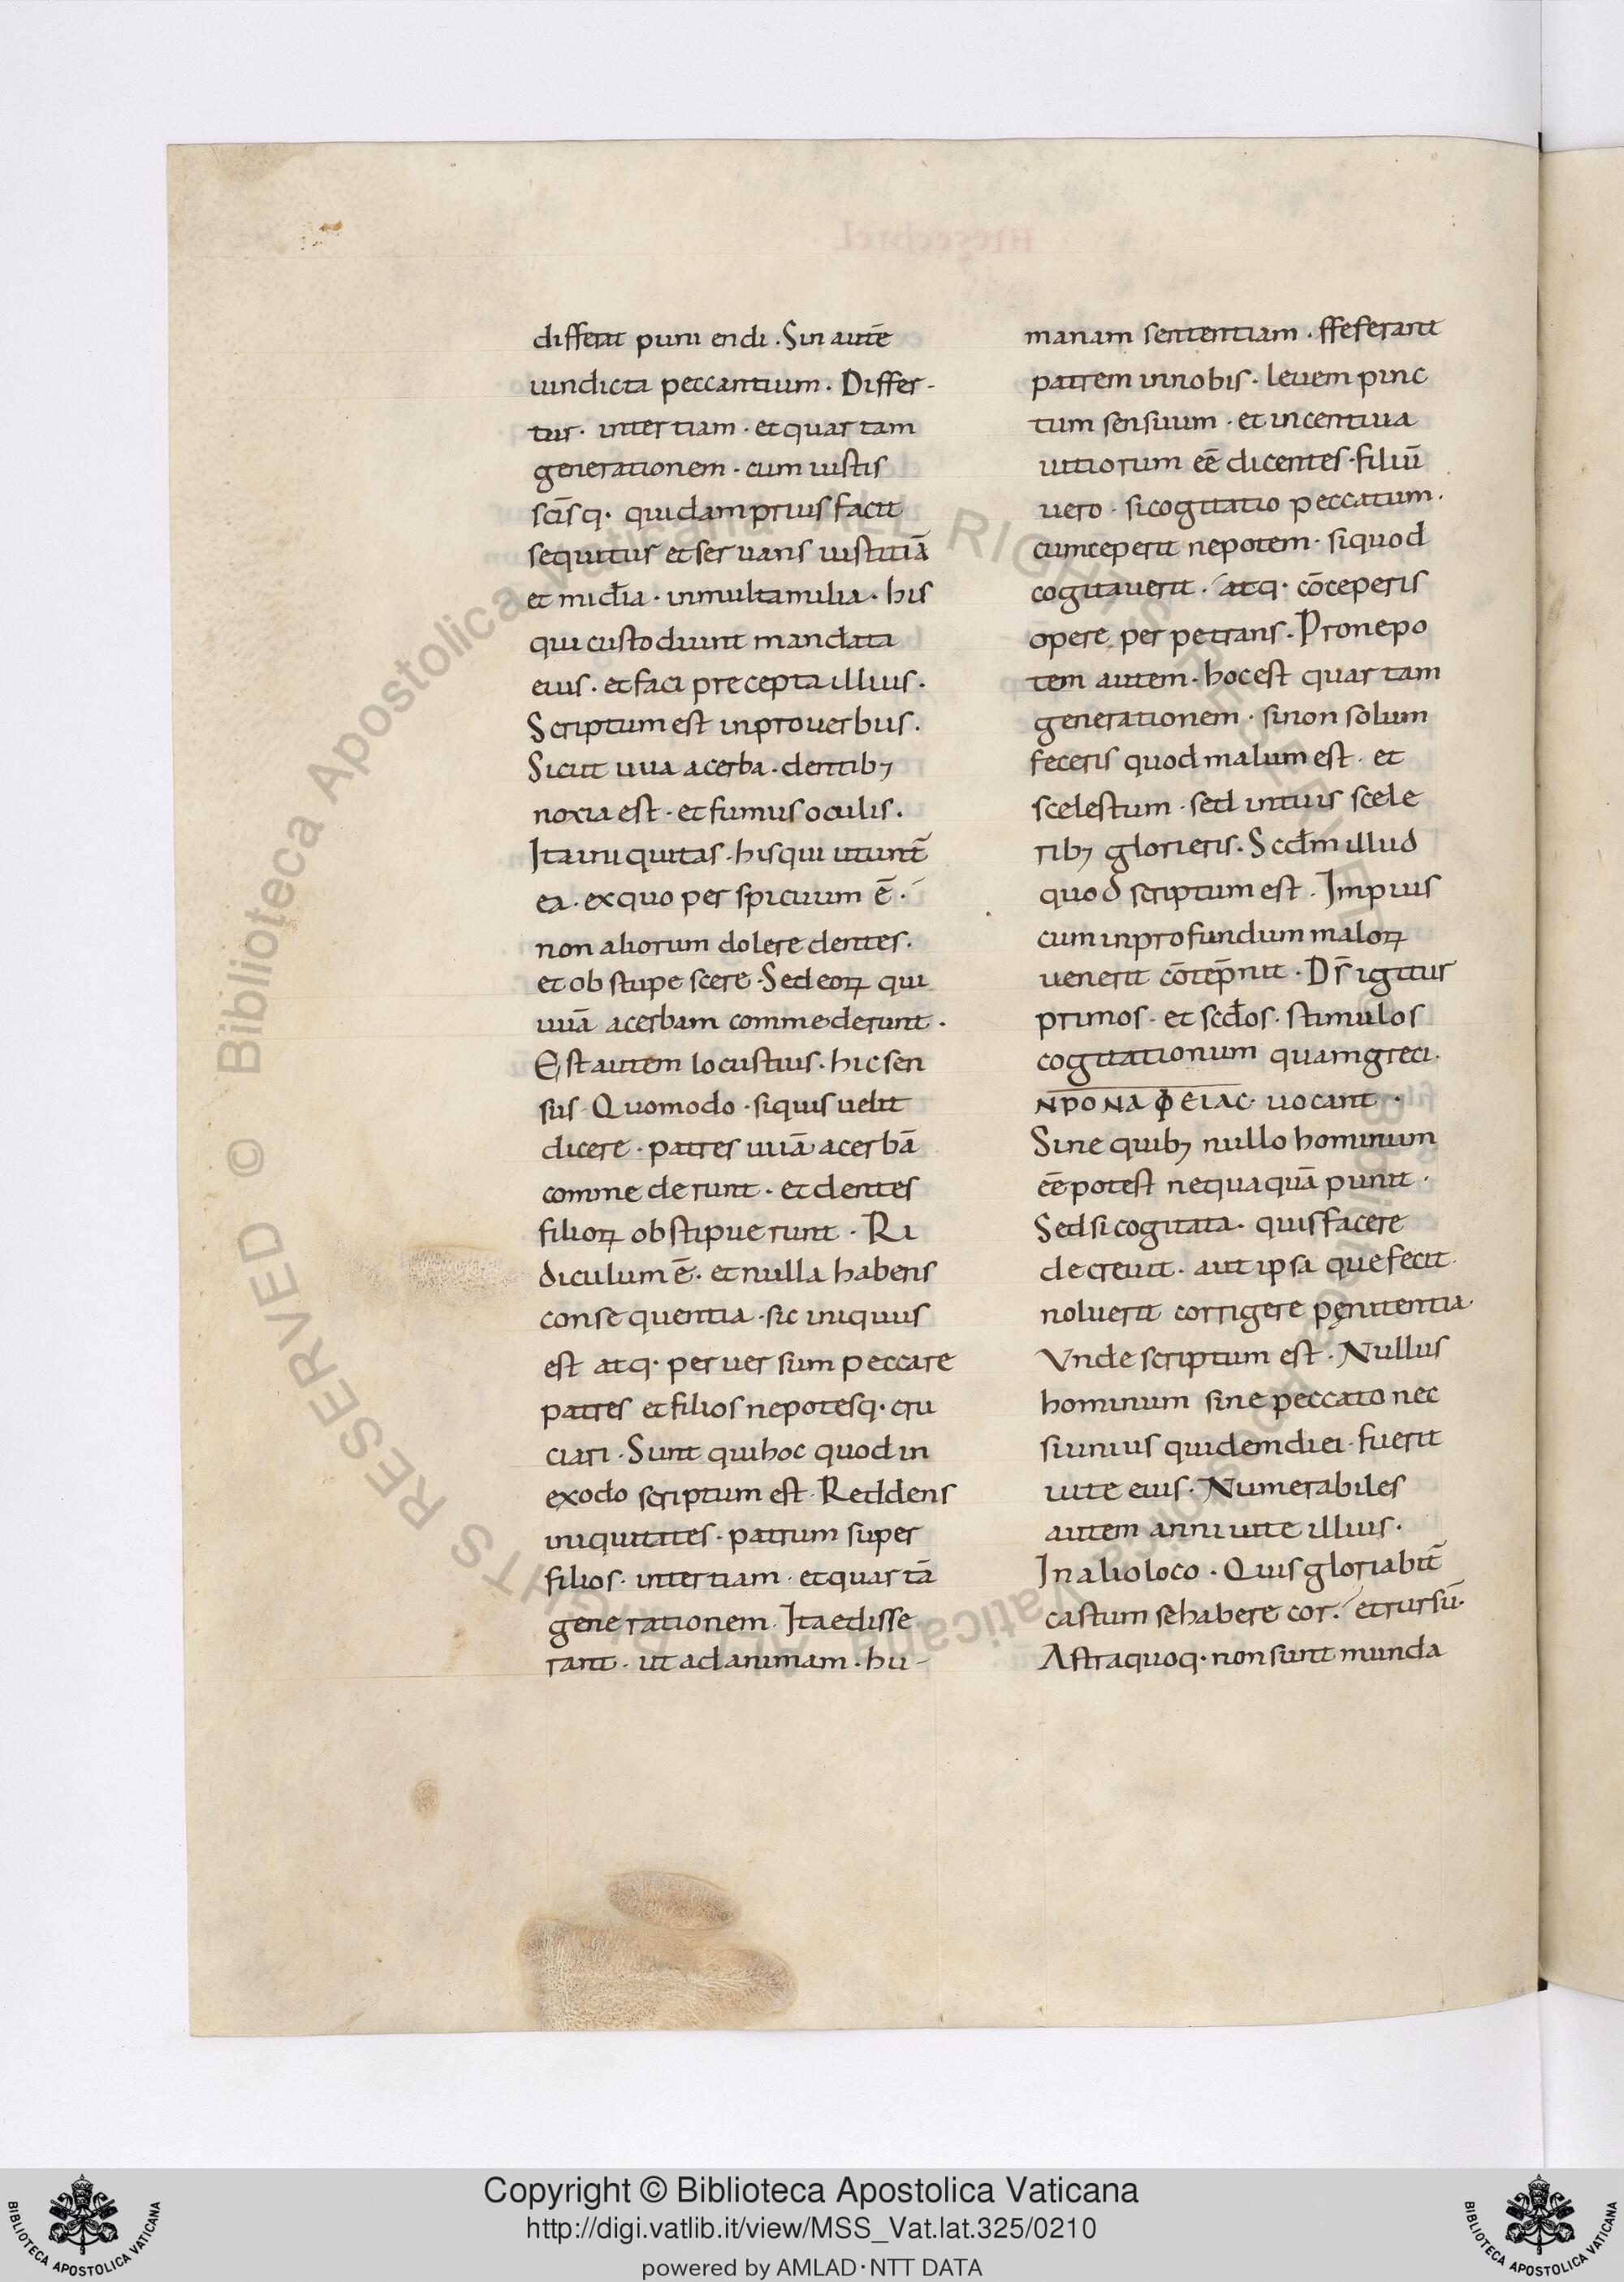 differat puniendi. Sin autē
uindicta peccantium. Differ-
tur. in tertiam. et quartam
generationem. cum iustis
sc̄isq. quidam prius facit
sequitur et seruans iustitiā
et mid̄ia. in multa milia. his
qui custodiunt mandata
eius. et faci precepta illius.
Scriptum est in prouerbiis.
Sicut uua acerba. dentibꝫ
noxia est. et fumus oculis.
Ita iniquitas. his qui utunt̄
ea. ex quo perspicuum ē.
non aliorum dolere dentes.
et obstupescere. Sed eoꝝ qui
uuā acerbam commederunt.
Est autem locustius. hic sen
sus. Quomodo. si quis uelit
dicere. patres uuā acerbā
commederunt. et dentes
filioꝝ obstipuerunt. Ri
diculum ē. et nulla habens
consequentia. sic iniquus
est atq. peruersum peccare
patres et filios nepotesq. cru
ciari. Sunt qui hoc quod in
exodo scriptum est. Reddens
iniquitates. patrum super
filios. in tertiam. et quartā
generationem. Ita edisse
rant. ut ad animam. hu-
manam sententiam. ffeferant
patrem in nobis. leuem punc
tum sensuum. et incentiua
uitiorum eē dicentes. filiū
uero. si cogitatio peccatum.
cumceperit nepotem. si quod
cogitauerit. atq. cōceperis
opere perpetrans. Pronepo
tem autem. hoc est quartam
generationem. si non solum
feceris quod malum est. et
scelestum. sed in tuis scele
ribꝫ glorieris. Scd̄m illud
quod scriptum est. Impius
cum in profundum maloꝝ
uenerit cōtep̄nit. Ds̄ igitur
primos. et scd̄os. stimulos
cogitationum quam greci.
ΝΡΟΝΑΦΕΙΑC. uocant.
Sine quibꝫ nullo hominum
eē potest nequaquā punit.
Sed si cogitata. quis facere
decreuit. aut ipsa que fecit.
noluerit corrigere pęnitentia
Vnde scriptum est. Nullus
hominum sine peccato nec
si unius quidem diei. fuerit
uite eius. Numerabiles
autem anni uite illius.
In alio loco. Quis gloriabit̄
castum se habere cor. et rursū.
Astra quoq. non sunt munda
Copyright © Biblioteca Apostolica Vaticana
http://digi.vatlib.it/view/MSS_Vat.lat.325/0210
powered by AMLAD·NTT DATA